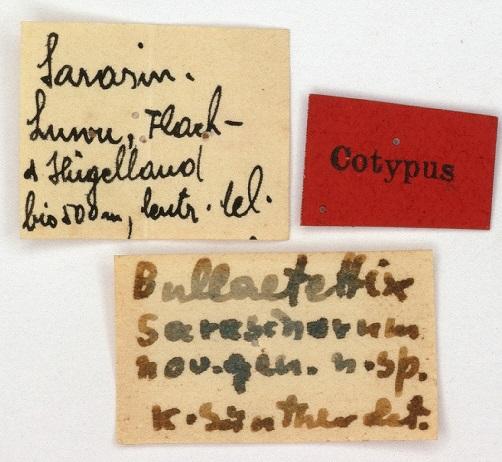 Sarasin.
Luwu, Flach-
& Hügelland
bis 500 m, Centr. Cel.
Cotypus
Bullaetettix
Sarasinorum
nov. gen. n. sp.
K. Günther det.